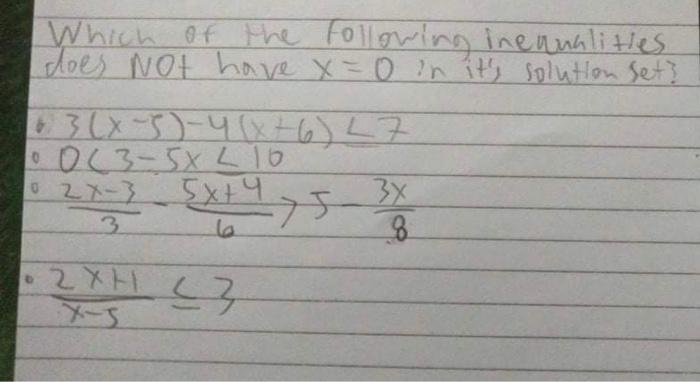 Which of the following inequalities
does NOt have x = 0 in it's solution set?
• 3(x-5)-4(x+6) ≤ 7
• 0<3-5x ≤ 10
• 2x-3/3 - 5x+4/6 > 5 - 3x/8
• 2x+1/x-5 ≤ 3